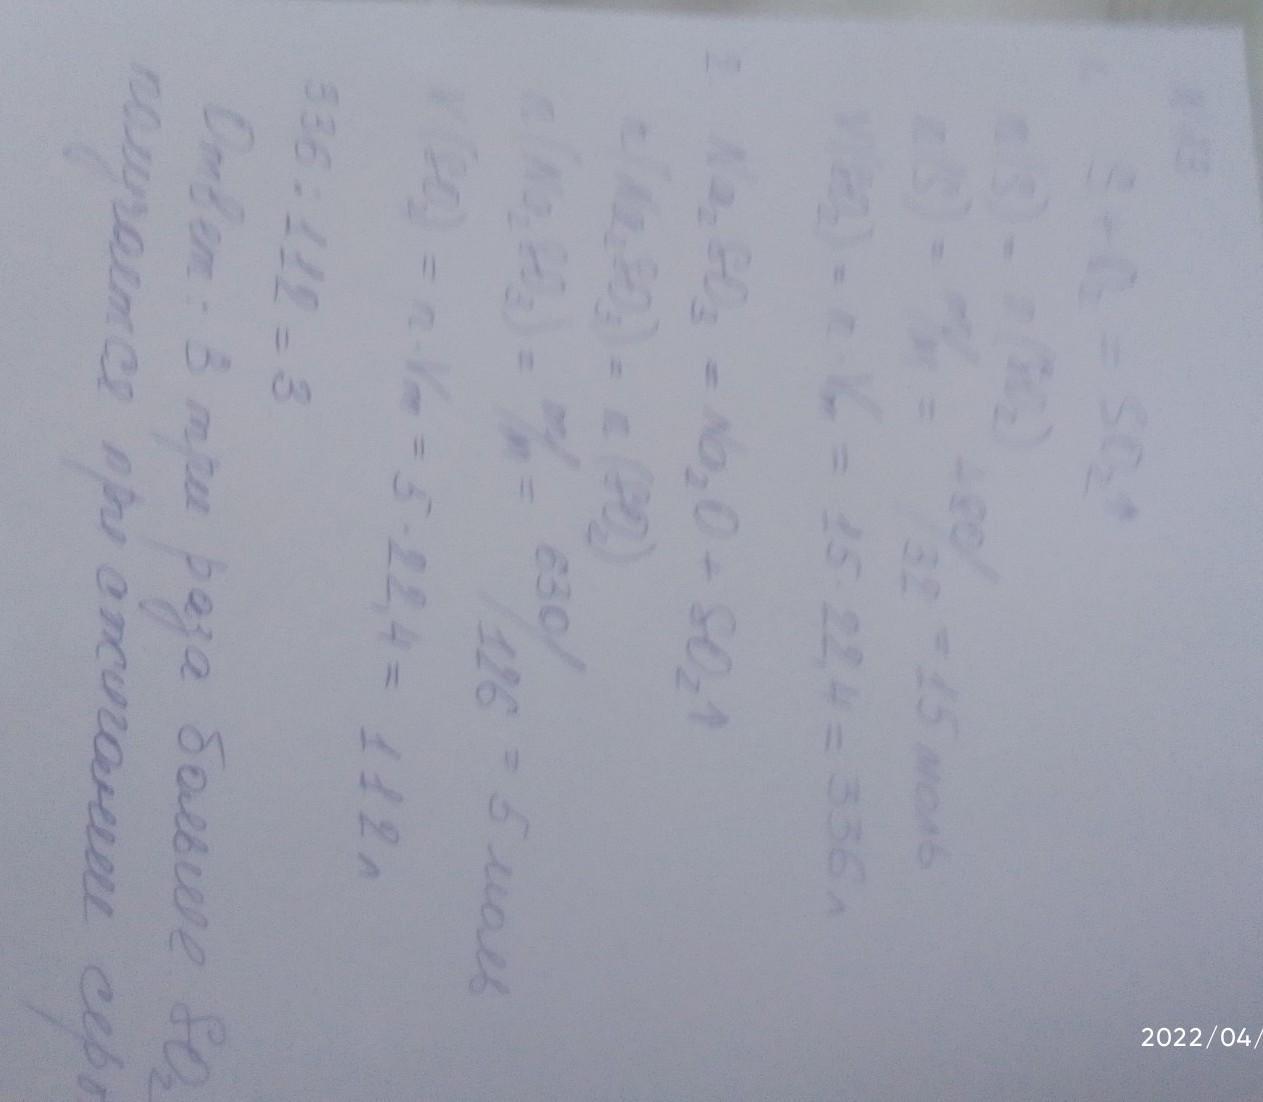 S + O₂ = SO₂↑
n(S) = n(SO₂)
n(S) = m/M = 480/32 = 15 моль
V(SO₂) = n·Vm = 15·22,4 = 336 л
2. Na₂SO₃ = Na₂O + SO₂↑
n(Na₂SO₃) = n(SO₂)
n(Na₂SO₃) = m/M = 630/126 = 5 моль
V(SO₂) = n·Vm = 5·22,4 = 112 л
336 : 112 = 3
Ответ: В три раза больше SO₂
получается при сжигании
2022/04/